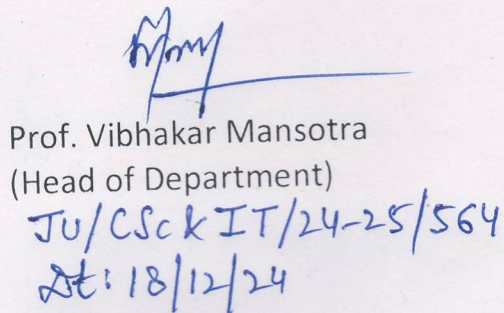 Prof. Vibhakar Mansotra
(Head of Department)
JU/CSc & IT/24-25/564
Dt: 18/12/24